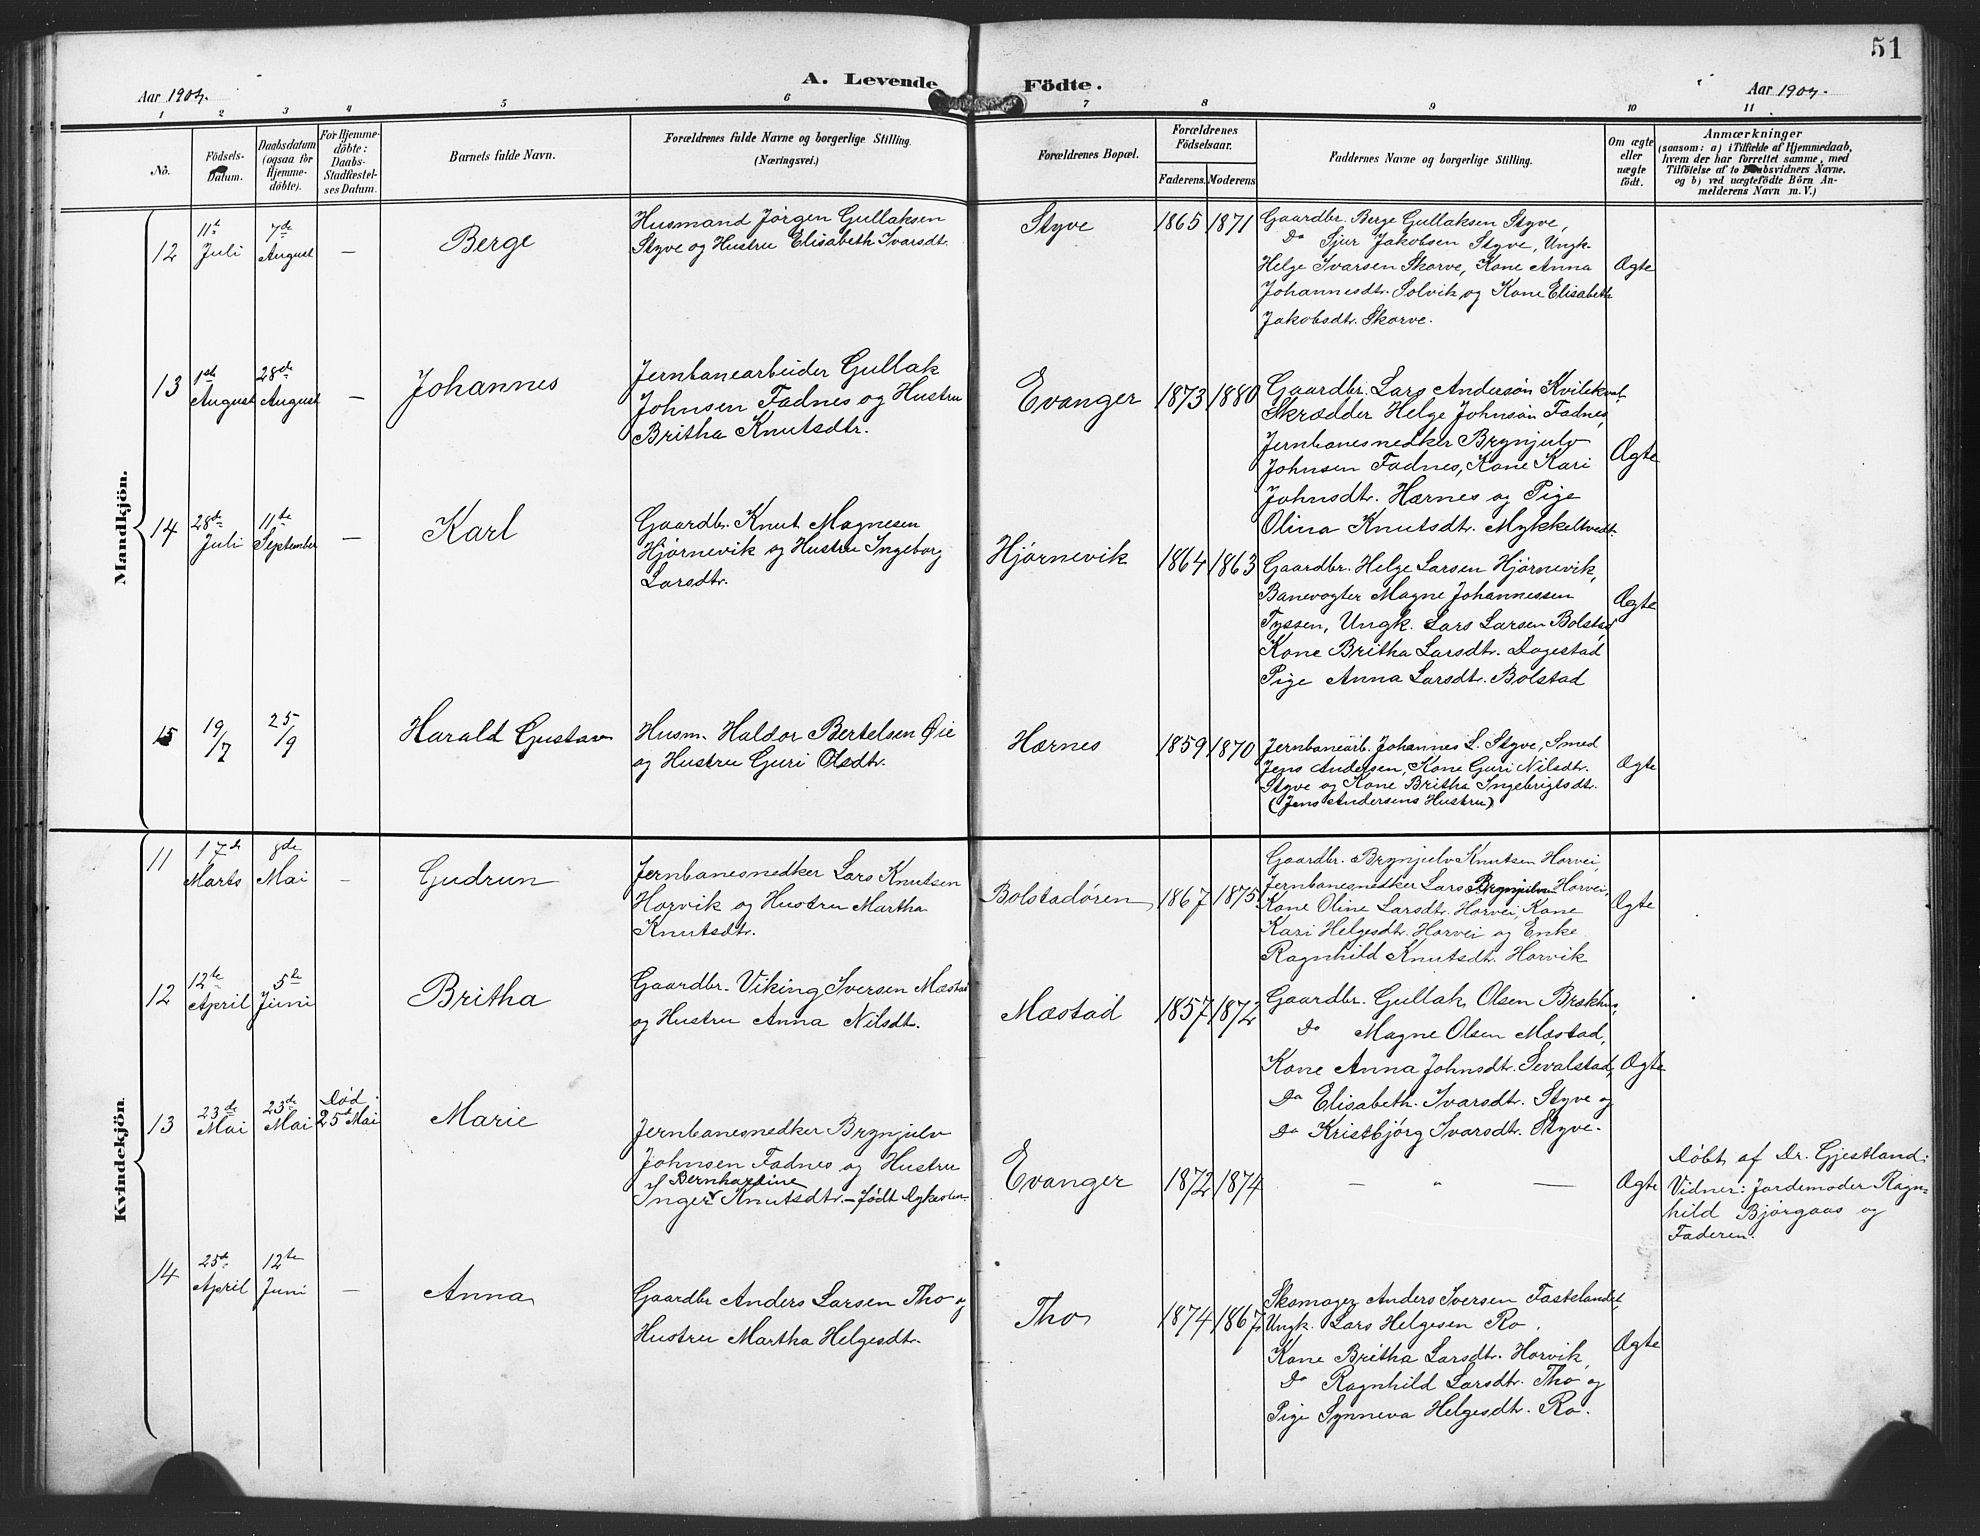 51
A. Levende Födte.
Aar 1904.
Aar 1904.
1 2 3 4 5 6 7 8 9 10 11
No.
Födsels-
Datum.
Daabsdatum
(ogsaa for
Hjemme-
döbte).
For Hjemme-
döbte:
Daabs-
Stadfæstel-
ses Datum.
Barnets fulde Navn.
Forældrenes fulde Navne og borgerlige Stilling.
(Næringsvei.)
Forældrenes Bopæl.
Forældrenes
Födselsaar.
Faderens. Moderens
Faddernes Navne og borgerlige Stilling.
Om ægte
eller
uægte
födt.
Anmærkninger
(saasom: a) i Tilfælde af Hjemmedaab,
hvem der har forrettet samme, med
Tilföielse af to Daabsvidners Navne.
og b) ved uægtefödte Börn An-
melderens Navn m. V.)
Mandkjön.
12
11te
Juli
7de
August
—
Berge
Husmand Jørgen Gullaksen
Styve og Hustru Elisabeth Ivarsdt.
Styve
1865 1871
Gaardbr. Berge Gullaksen Styve,
Do Sjur Jakobsen Styve, Ungk.
Helge Ivarsen Skorve, Kone Anna
Johannesdtr. Solvik og Kone Elisabeth
Jakobsdtr. Skorve.
Ægte
13
1ste
August
28de
August
—
Johannes
Jernbanearbeider Gullak
Johnsen Fadnes og Hustru
Britha Knutsdtr.
Evanger
1873 1880
Gaardbr. Lars Andersøn Kvilekval
Skrædder Helge Johnsøn Fadnes,
Jernbanesnedker Brynjulv
Johnsen Fadnes, Kone Kari
Johnsdtr. Hærnes og Pige
Olina Knutsdtr. Mykkeltvedt.
Ægte
14
28de
Juli
11te
September
—
Karl
Gaardbr. Knut Magnesen
Hjørnevik og Hustru Ingeborg
Larsdtr.
Hjørnevik
1864 1863
Gaardbr. Helge Larsen Hjørnevik,
Banevogter Magne Johannessen
Tyssen, Ungk. Lars Larsen Bolstad
Kone Britha Larsdtr. Dagestad
Pige Anna Larsdtr. Bolstad
Ægte
15
19/7
25/9
Harald Gustav
Husm. Haldor Bertelsen Øie
og Hustru Guri Olsdtr.
Hærnes
1859 1870
Jernbanearb. Johannes L. Styve, Smed
Jens Andersen, Kone Guri Nilsdtr.
Styve og Kone Britha Ingebrigtsdtr.
(Jens Andersens Hustru)
Ægte
Kvindekjön.
11
17de
Marts
8de
Mai
—
Gudrun
Jernbanesnedker Lars Knutsen
Horvik og Hustru Martha
Knutsdtr.
Bolstadøren
1867 1875
Gaardbr. Brynjulv Knutsen Horvei,
Jernbanesnedker Lars Brynjulvsen Horvei,
Kone Oline Larsdtr. Horvei, Kone
Kari Helgesdtr. Horvei og Enke
Ragnhild Knutsdtr. Horvik
Ægte
12
12te
April
5te
Juni
Britha
Gaardbr. Viking Iversen Mæstad
og Hustru Anna Nilsdtr.
Mæstad
1857 1872
Gaardbr. Gullak Olsen Brækhus,
Do Magne Olsen Mæstad,
Kone Anna Johnsdtr. Sevalstad,
Do Elisabeth Ivarsdtr. Styve og
Do Kristbjørg Ivarsdtr. Styve.
Ægte
13
23de
Mai
23de
Mai
Død
25de Mai
Marie
Jernbanesnedker Brynjulv
Johnsen Fadnes og Hustru
Bernhartine
Inger Knutsdtr. – født Dyke
Evanger
1872 1874
— " —
Ægte
Døbt af Dr. Gjestland:
Vidner: Jordemoder Ragn-
hild Bjørgaas og
Faderen.
14
25de
April
12te
Juni
—
Anna
Gaardbr Anders Larsen Tho og
Hustru Martha Helgesdtr.
Tho
1874 1867
Skomager Anders Iversen Fastelandet
Ungk. Lars Helgesen Ro,
Kone Britha Larsdtr. Horvik,
Do Ragnhild Larsdtr. Tho og
Pige Synneva Helgesdtr. Ro.
Ægte